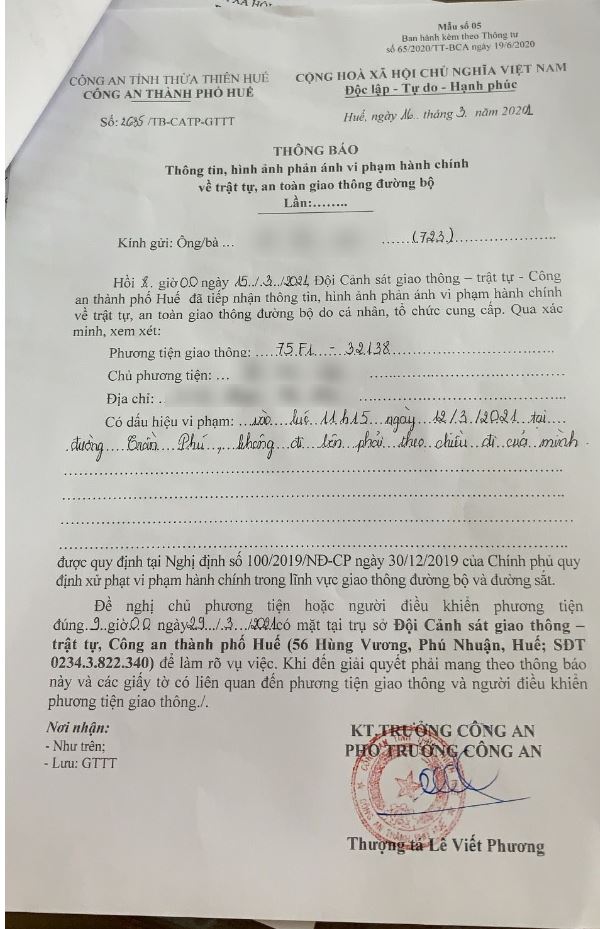 Mẫu số 05
Ban hành kèm theo Thông tư
số 65/2020/TT-BCA ngày 19/6/2020
CÔNG AN TỈNH THỪA THIÊN HUẾ
CÔNG AN THÀNH PHỐ HUẾ
Số: 2635 /TB-CATP-GTTT
CỘNG HOÀ XÃ HỘI CHỦ NGHĨA VIỆT NAM
Độc lập - Tự do - Hạnh phúc
Huế, ngày 16.. tháng 3. năm 2021
THÔNG BÁO
Thông tin, hình ảnh phản ánh vi phạm hành chính
về trật tự, an toàn giao thông đường bộ
Lần:........
Kính gửi: Ông/bà ... ......(723)....................
Hồi 8. giờ 00 ngày 15../.3.../2021, Đội Cảnh sát giao thông – trật tự - Công
an thành phố Huế đã tiếp nhận thông tin, hình ảnh phản ánh vi phạm hành chính
về trật tự, an toàn giao thông đường bộ do cá nhân, tổ chức cung cấp. Qua xác
minh, xem xét:
Phương tiện giao thông: ....75.F1 ...- 32138................................
Chủ phương tiện: ... ............................
Địa chỉ: . ............................
Có dấu hiệu vi phạm: ...vào... lúc 11h15 ngày...12/3./2021..tại....
đường....Trần...Phú.,..không...đi...bên...phải...theo chiều đi của mình.
được quy định tại Nghị định số 100/2019/NĐ-CP ngày 30/12/2019 của Chính phủ quy
định xử phạt vi phạm hành chính trong lĩnh vực giao thông đường bộ và đường sắt.
Đề nghị chủ phương tiện hoặc người điều khiển phương tiện
đúng .9..giờ00 ngày29.../.3.../2021có mặt tại trụ sở Đội Cảnh sát giao thông –
trật tự, Công an thành phố Huế (56 Hùng Vương, Phú Nhuận, Huế; SĐT
0234.3.822.340) để làm rõ vụ việc. Khi đến giải quyết phải mang theo thông báo
này và các giấy tờ có liên quan đến phương tiện giao thông và người điều khiển
phương tiện giao thông./.
Nơi nhận:
- Như trên;
- Lưu: GTTT
KT.TRƯỞNG CÔNG AN
PHÓ TRƯỞNG CÔNG AN
Thượng tá Lê Viết Phương